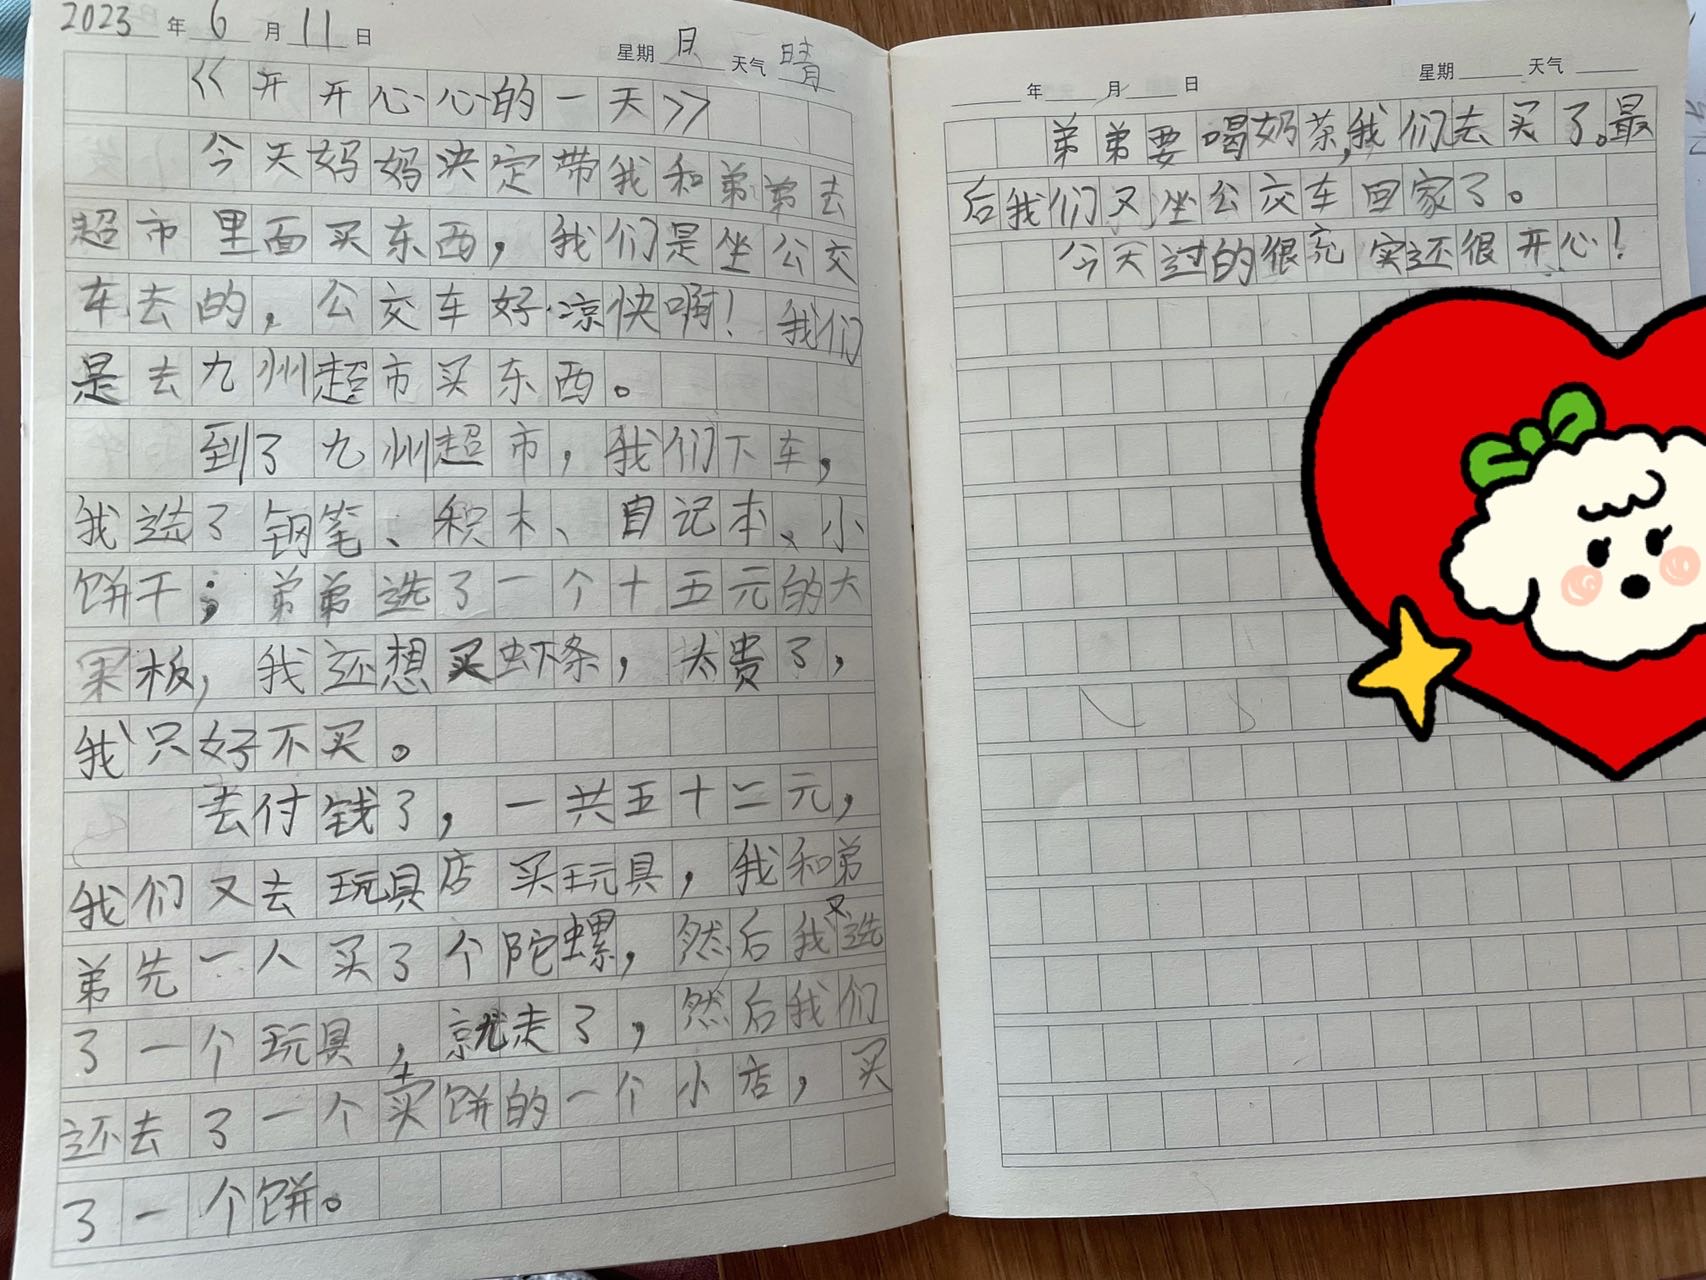 2023年6月11日 星期日 天气晴
《开开心心的一天》
今天妈妈决定带我和弟弟去
超市里面买东西，我们是坐公交
车去的，公交车好凉快啊！我们
是去九州超市买东西。
到了九州超市，我们下车，
我选了钢笔、积木、自记本、小
饼干；弟弟选了一个十五元的大
果板，我还想买虾条，太贵了，
我只好不买。
去付钱了，一共五十二元，
我们又去玩具店买玩具，我和弟
弟先一人买了个陀螺，然后我又选
了一个玩具，就走了，然后我们
还去了一个卖饼的一个小店，买
了一个饼。
年 月 日 星期 天气
弟弟要喝奶茶，我们去买了。最
后我们又坐公交车回家了。
今天过的很充实还很开心！